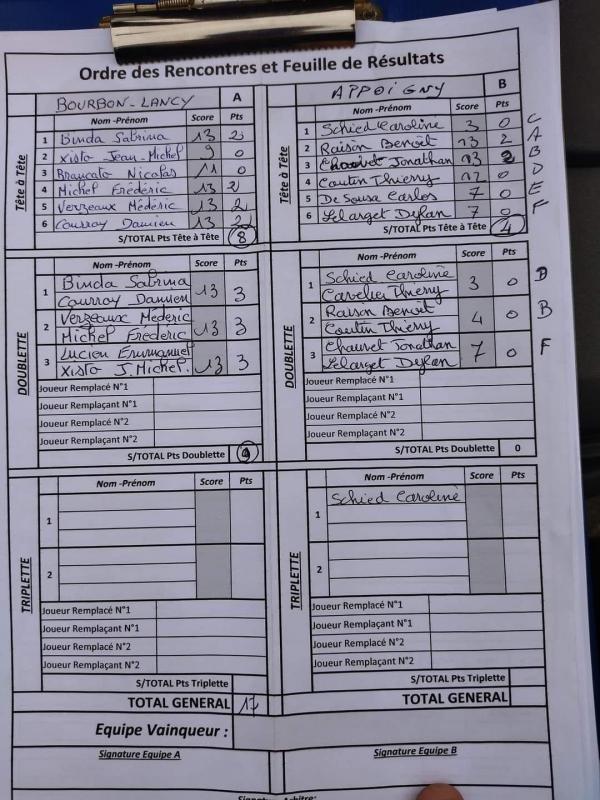 Ordre des Rencontres et Feuille de Résultats
BOURBON-LANCY A
Nom -Prénom Score Pts
Tête à Tête
1 Binda Sabrina 13 2
2 Xisto Jean-Michel 9 0
3 Brancato Nicolas 11 0
4 Michel Frédéric 13 2
5 Verzeaux Médéric 13 2
6 Courray Damien 13 2
S/TOTAL Pts Tête à Tête 8
APPOIGNY B
Nom -Prénom Score Pts
Tête à Tête
1 Schied Caroline 3 0 C
2 Raison Benoit 13 2 A
3 Chauvet Jonathan 13 2 B
4 Coutin Thierry 12 0 D
5 De Sousa Carlos 7 0 E
6 Lelarget Dylan 7 0 F
S/TOTAL Pts Tête à Tête 4
Nom -Prénom Score Pts
DOUBLETTE
1 Binda Sabrina
Courray Damien 13 3
2 Verzeaux Médéric
Michel Frédéric 13 3
3 Lucien Emmanuel
Xisto J. Michel. 13 3
Joueur Remplacé N°1
Joueur Remplaçant N°1
Joueur Remplacé N°2
Joueur Remplaçant N°2
S/TOTAL Pts Doublette 9
Nom -Prénom Score Pts
DOUBLETTE
1 Schied Caroline
Cavelier Thierry 3 0 D
2 Raison Benoit
Coutin Thierry 4 0 B
3 Chauvet Jonathan
Lelarget Dylan 7 0 F
Joueur Remplacé N°1
Joueur Remplaçant N°1
Joueur Remplacé N°2
Joueur Remplaçant N°2
S/TOTAL Pts Doublette 0
Nom -Prénom Score Pts
TRIPLETTE
1
2
Joueur Remplacé N°1
Joueur Remplaçant N°1
Joueur Remplacé N°2
Joueur Remplaçant N°2
S/TOTAL Pts Triplette
TOTAL GENERAL 17
Nom -Prénom Score Pts
TRIPLETTE
1 Schied Caroline
2
Joueur Remplacé N°1
Joueur Remplaçant N°1
Joueur Remplacé N°2
Joueur Remplaçant N°2
S/TOTAL Pts Triplette
TOTAL GENERAL
Equipe Vainqueur :
Signature Equipe A
Signature Equipe B
Signature Arbitre: